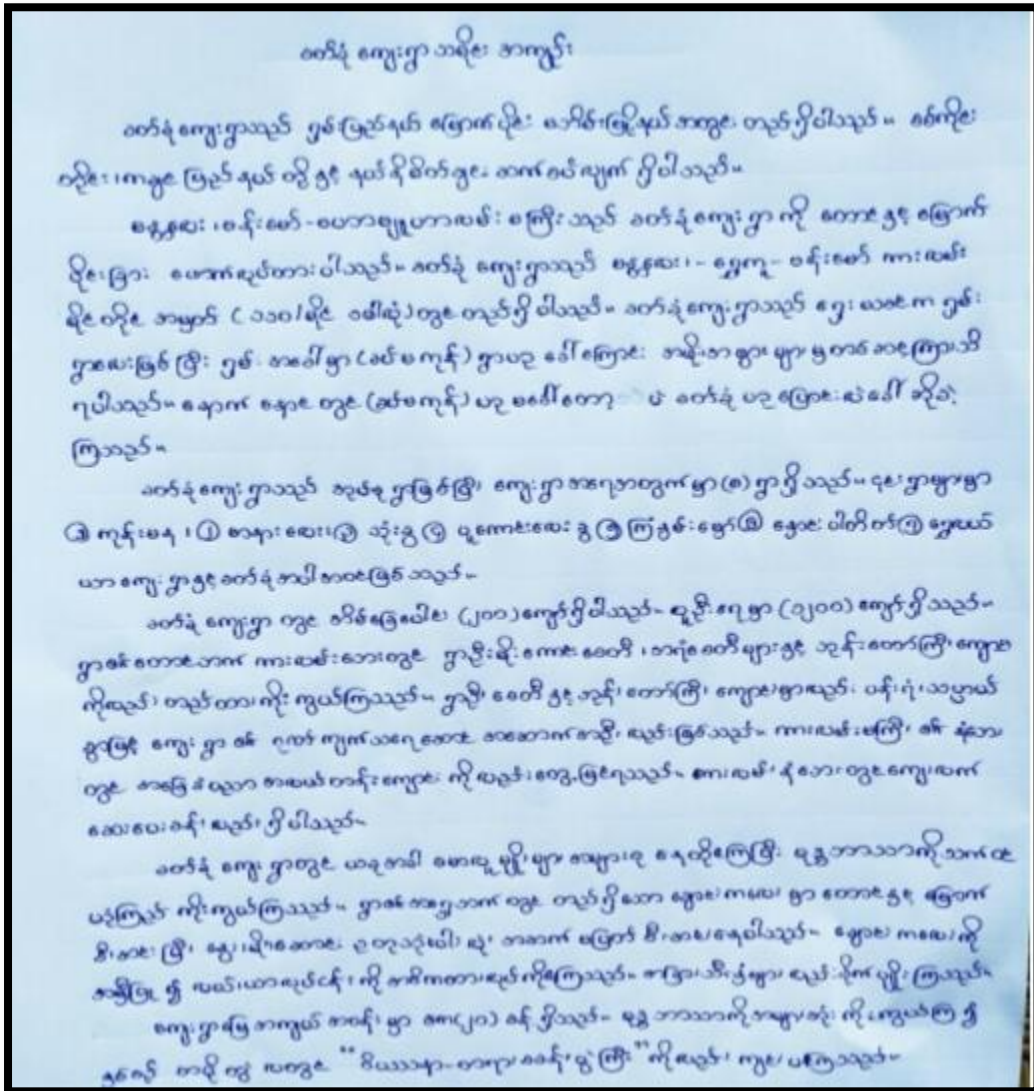 ခတ်ခုံ ကျေးရွာ သမိုင်း အကျဉ်း
ခတ်ခုံကျေးရွာသည် ရှမ်းပြည်နယ် မြောက်ပိုင်း မဘိမ်းမြို့နယ် အတွင်း တည်ရှိပါသည်။ စစ်ကိုင်း
တိုင်း၊ ကချင် ပြည်နယ် တို့ နှင့် နယ်နိမိတ်ချင်း ဆက်စပ်လျက် ရှိပါသည်။
မန္တလေး၊ ဗန်းမော်-မဟာဗျူဟာလမ်း မကြီး သည် ခတ်ခုံကျေးရွာ ကို တောင်နှင့် မြောက်
ပိုင်းခြား ဖောက်လုပ်ထားပါသည်။ ခတ်ခုံ ကျေးရွာသည် မန္တလေး၊ - ရွှေကူ - ဗန်းမော် ကားလမ်း
မိုင်တိုင် အမှတ် ( ၁၁၀/မိုင် ) တွင် တည်ရှိပါသည်။ ခတ်ခုံကျေးရွာသည် ရှေး ယခင်က ရှမ်း
ရွာလေးဖြစ်ပြီး ရှမ်း အခေါ်မှာ (ခပ်မကုန်) ရွာဟု ခေါ်ကြောင်း အဖိုးအဘွား များမှ တစ်ဆင့်ကြားသိ
ရပါသည်။ နောက် နောင် တွင် (ခပ်မကုန်) ဟု မခေါ်တော့ ပဲ ခတ်ခုံ ဟု ပြောင်းလဲခေါ် ဆိုခဲ့
ကြသည်။
ခတ်ခုံကျေးရွာသည် အုပ်စု ရွာဖြစ်ပြီး ကျေးရွာ အရေအတွက်မှာ (၈) ရွာ ရှိသည်။ ၎င်းရွာများမှာ
ကုန်းမန ၊ ② စာနားလေး၊ ③ သုံးခွ ④ ပူကောင်းလေး ခွ ⑤ ကြံနွမ်းမော် ⑥ နောင်ပါတိတ် ⑦ ရွှေလယ်
ယာ ကျေးရွာနှင့် ခတ်ခုံ အပါအဝင်ဖြစ်သည်။
ခတ်ခုံ ကျေးရွာ တွင် အိမ်ခြေပေါင်း (၂၀၀) ကျော်ရှိပါသည်။ လူဦးရေမှာ (၁၂၀၀) ကျော်ရှိသည်။
ရွာ၏ တောင်ဘက် ကားလမ်းဘေးတွင် ရွာဦးမိုးကောင်းစေတီ ၊ အရံစေတီများနှင့် ဘုန်းတော်ကြီးကျောင်း
ကိုလည်း တည်ထားကိုးကွယ်ကြသည်။ ရွာဦး စေတီ နှင့် ဘုန်းတော်ကြီး ကျောင်းမှာလည်း ပန်းရံ၊ သပ္ပာယ်
စွာဖြင့် ကျေးရွာ ၏ ဂုဏ် ကျက်သရေဆောင် အဆောက်အဦး လည်းဖြစ်သည်။ ကားလမ်းမကြီး ၏ နံဘေး
တွင် အခြေခံပညာ အလယ်တန်းကျောင်း ကိုလည်း တွေ့မြင်ရသည်။ ကားလမ်း နံဘေးတွင် ကျေးလက်
ဆေးပေးခန်း လည်း ရှိပါသည်။
ခတ်ခုံ ကျေးရွာတွင် ယခုအခါ လူမျိုးများ အများစု နေထိုင်ကြပြီး ဗုဒ္ဓဘာသာကို သက်ဝင်
ယုံကြည် ကိုးကွယ်ကြသည်။ ရွာ၏ အရှေ့ဘက် တွင် တည်ရှိသော ချောင်းကလေး မှာ တောင်နှင့် မြောက်
စီးဆင်း ပြီး နွေ၊ မိုး၊ ဆောင်း ဥတုသုံးပါး လုံး အဆက် မပြတ် စီးဆင်းနေပါသည်။ ချောင်းကလေးကို
အမှီပြု ၍ လယ်ယာလုပ်ငန်း ကို အဓိကထားလုပ်ကိုင်ကြသည်။ အခြားသီးနှံများ လည်း စိုက်ပျိုး ကြသည်။
ကျေးရွာမြေ အကျယ် အဝန်း မှာ ဧက(၂၀) ခန့် ရှိသည်။ ဗုဒ္ဓ ဘာသာကို အများဆုံး ကိုးကွယ်ကြ ၍
နှစ်စဉ် တပို့တွဲ လတွင် "ဝိပဿနာ-တရား စခန်းပွဲကြီး" ကိုလည်း ကျင်းပကြသည်။